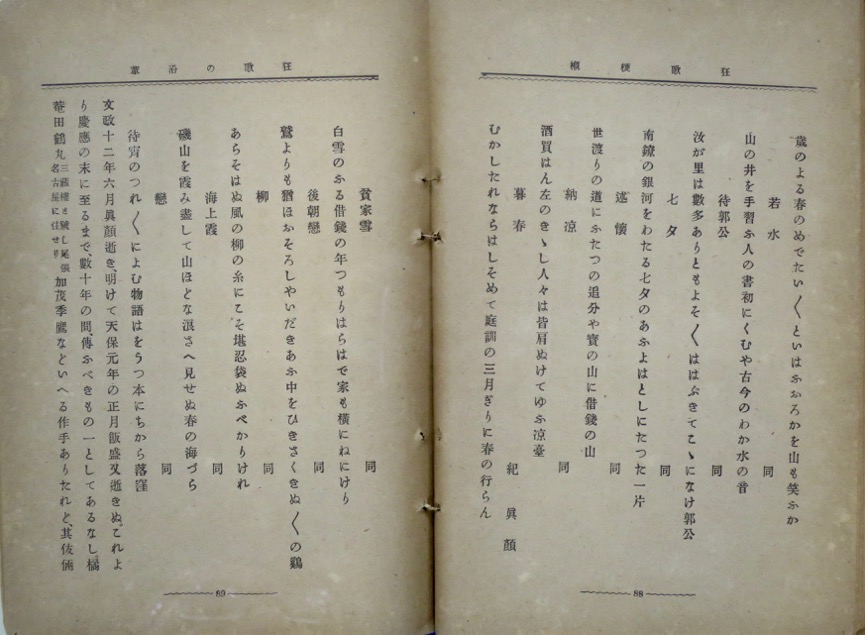 狂歌梗概
歳のよる春のめでたい〳〵といはふおろかを山も笑ふか
若水　同
山の井を手習ふ人の書初にくむや古今のわか水の音
待郭公　同
汝が里は數多ありともよそ〳〵ははぶきてこゝになけ郭公
七夕　同
南鐐の銀河をわたる七夕のあふよはとしにたつた一片
述懷　同
世渡りの道にふたつの追分や寳の山に借錢の山
納凉　同
酒買はん左のきゝし人々は皆肩ぬけてゆふ凉臺
暮春　紀眞顏
むかしたれならはしそめて庭訓の三月ぎりに春の行らん
88
狂歌の沿革
貧家雪　同
白雪のふる借錢の年つもりはらはで家も橫にねにけり
後朝戀　同
鷲よりも猶おそろしやいだきあふ中をひきさくきぬ〳〵の鷄
柳　同
あらそはぬ風の柳の糸にこそ堪忍袋ぬふべかりけれ
海上霞　同
磯山を霞み盡して山ほどな浪さへ見せぬ春の海づら
戀　同
待宵のつれ〴〵によむ物語はをうつ本にちから落窪
文政十二年六月眞顏逝き、明けて天保元年の正月飯盛又逝きぬ。これよ
り慶應の末に至るまで、數十年の間、傳ふべきもの一としてあるなし、橘
菴田鶴丸三藏樓と號し尾張名古屋に住せり加茂季鷹などいへる作手ありたれど、其伎倆
89